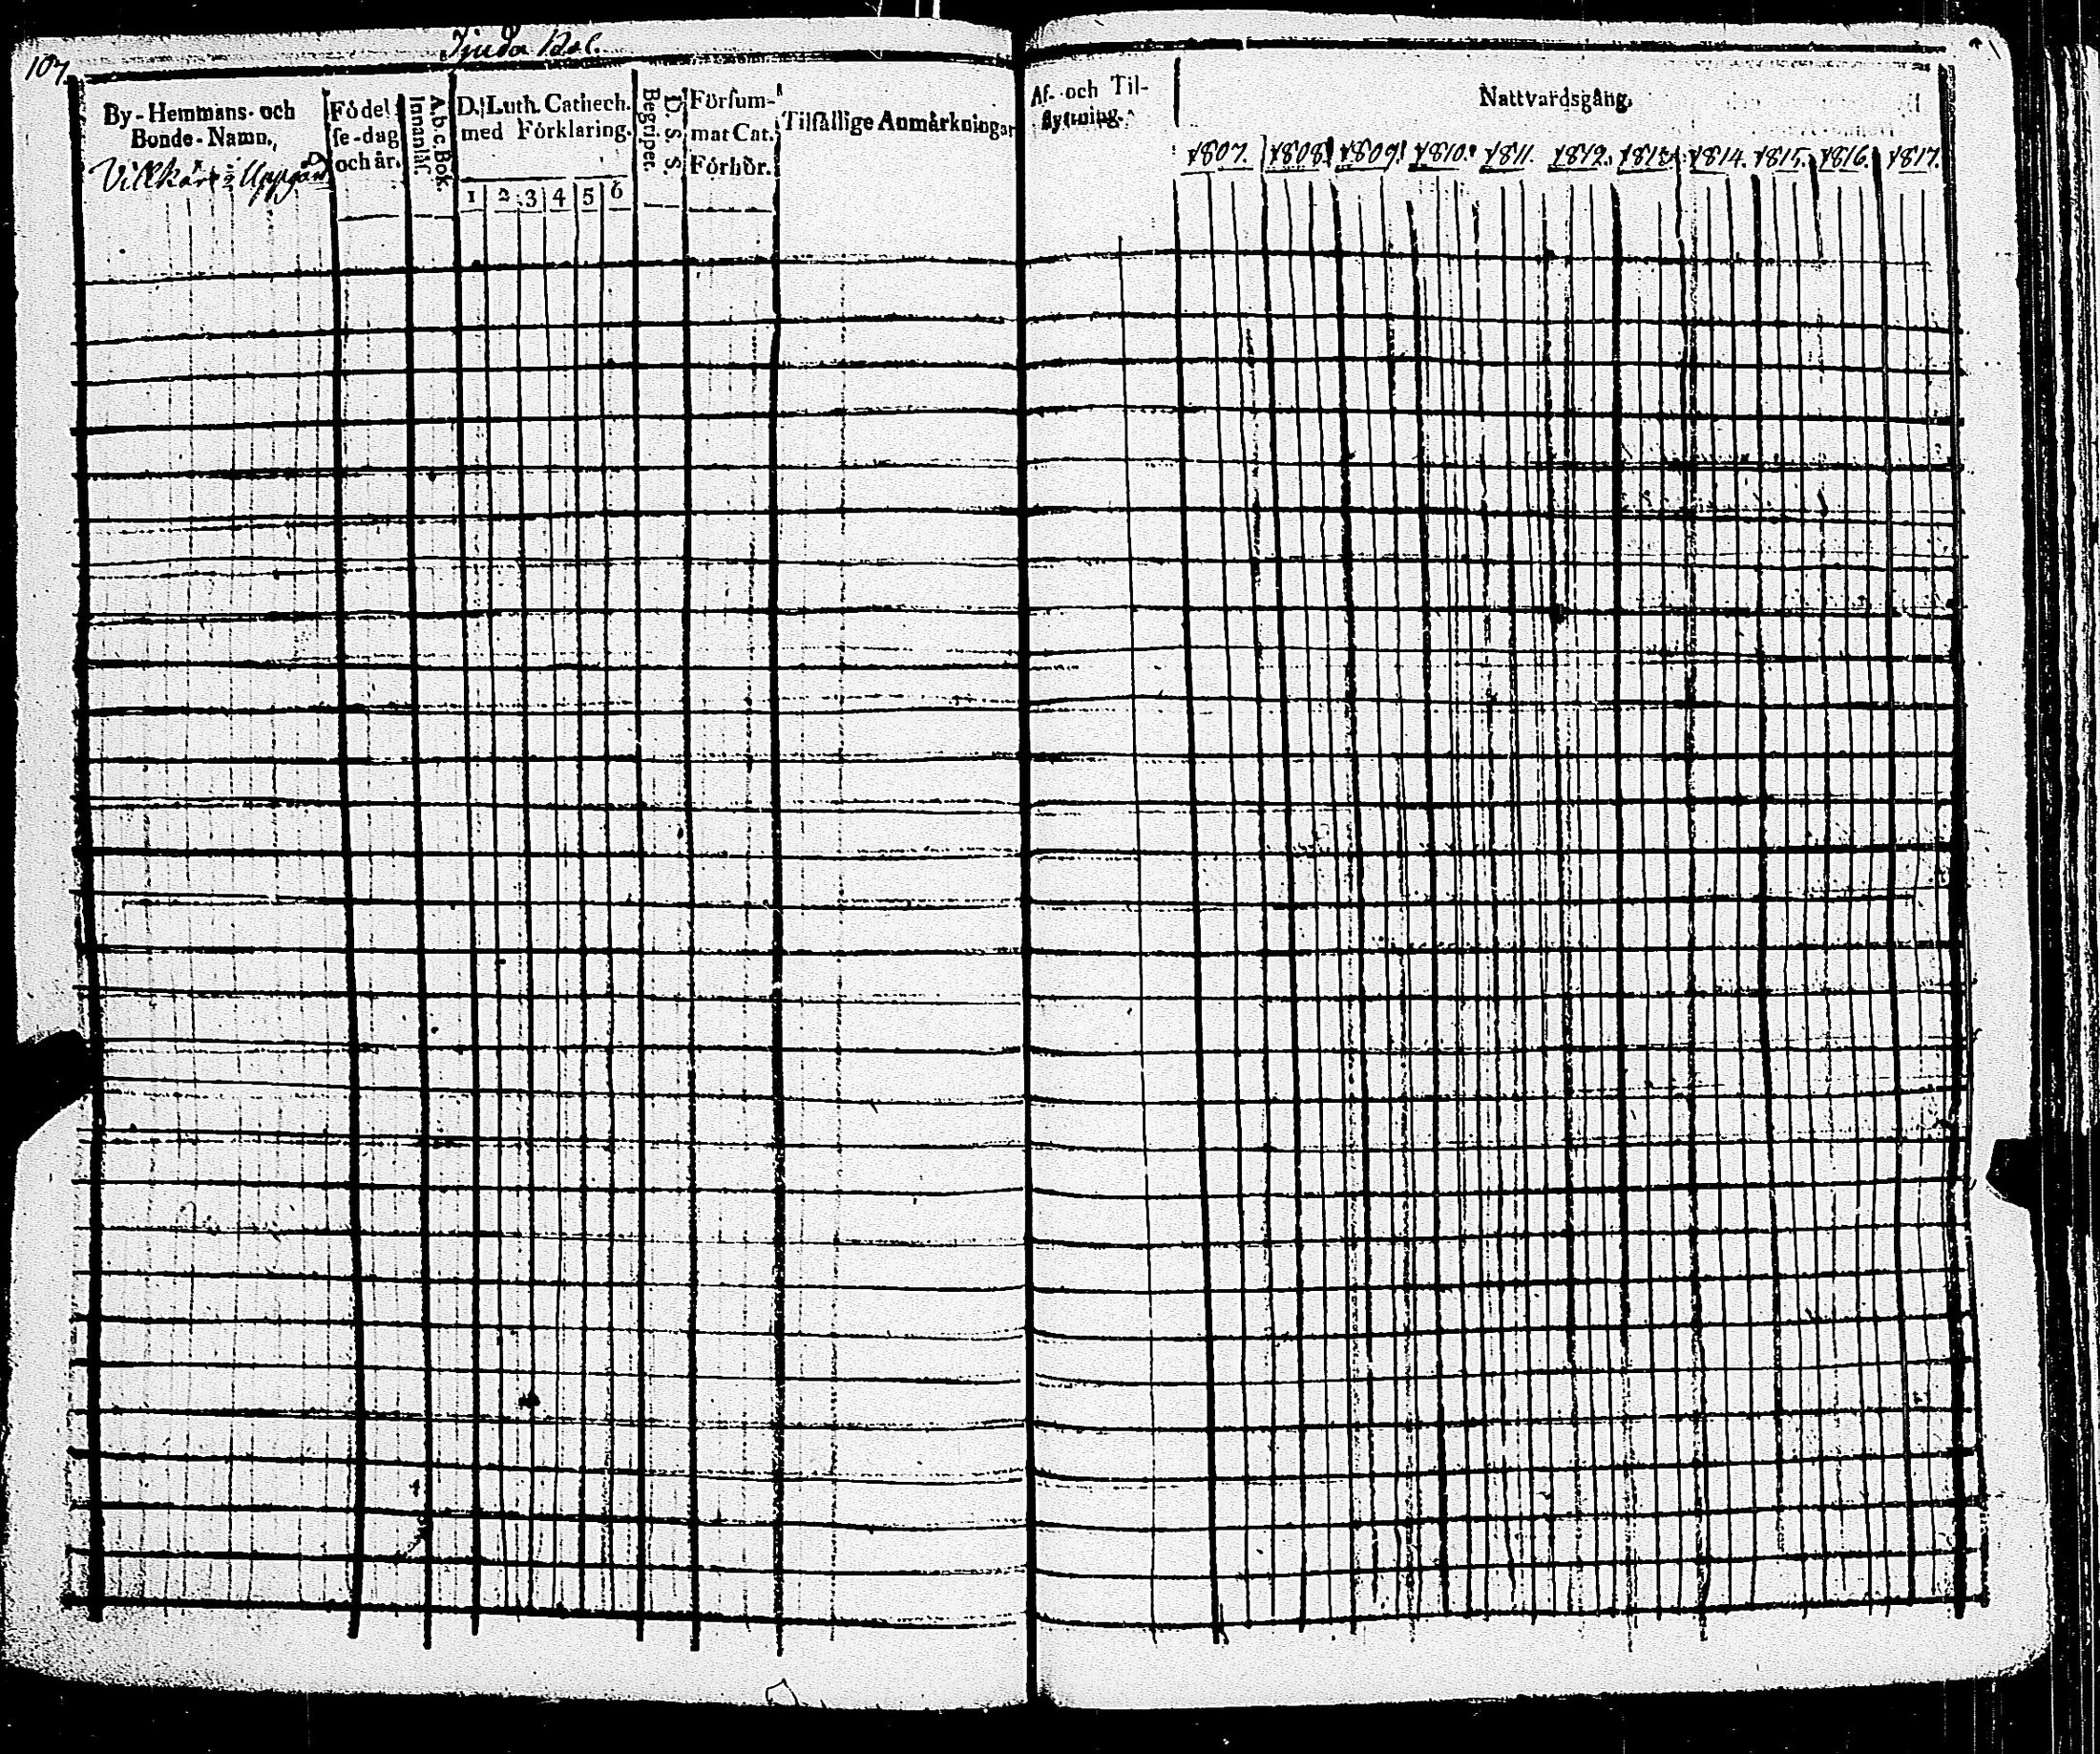 107.
By-Hemmans- och
Bonde-Namn,
Födel-
se-dag
och år.
A.b.c. Bok.
Innanläs.
D. Luth. Cathech.
med Förklaring.
1 2 3 4 5 6
D. S. S.
Begriper.
Försum-
mat Cat.
Förhör.
Tilfällige Anmärkningar
Af- och Til-
flyttning.
Nattvardsgång.
1807. 1808. 1809. 1810. 1811. 1812. 1813. 1814. 1815. 1816. 1817.